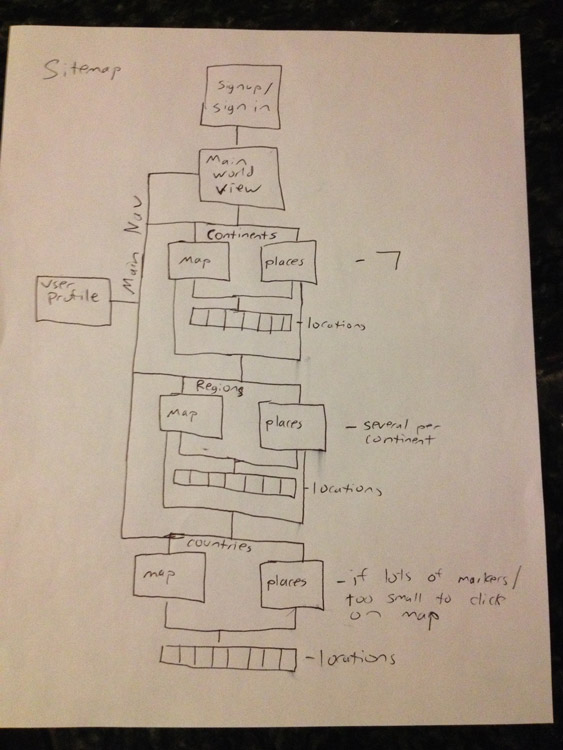 Sitemap
signup/
sign in
Main
world
view
Main Nav
Continents
Map
places
- 7
user
profile
- locations
Regions
Map
places
- several per
continent
- locations
countries
map
places
- if lots of markers/
too small to click
on map
- locations